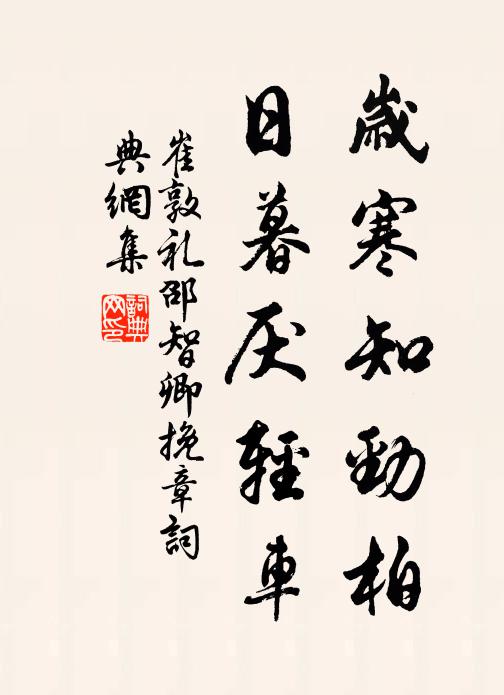 歲寒知勁柏
日暮厌輕車
崔敦礼邵智卿挽章詞
典網集
詞典
网印